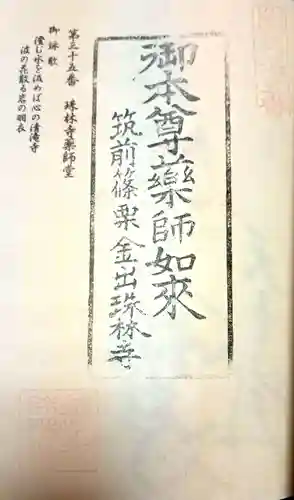 御本尊薬師如来
筑前篠栗金出珠林寺
第三十五番 珠林寺薬師堂
御詠歌
澄む水を汲めば心の清滝寺
波の花散る岩の羽衣